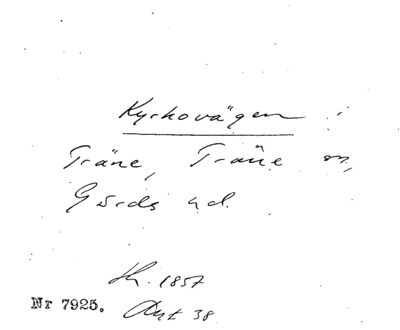 Kyrkovägen i
Träne, Träne sn,
Gärds hd.
Sk. 1857
Nr 7925. Akt 38